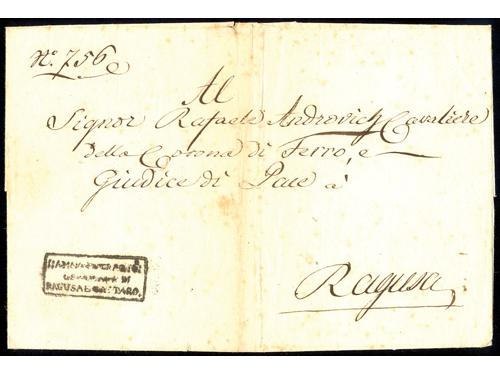 No. 756
Al
Signor Rafaele Androvich Cavaliere
della Corona di Ferro, e
Giudice di Pace à
Ragusa
DI
RAGUSA E CATTARO.